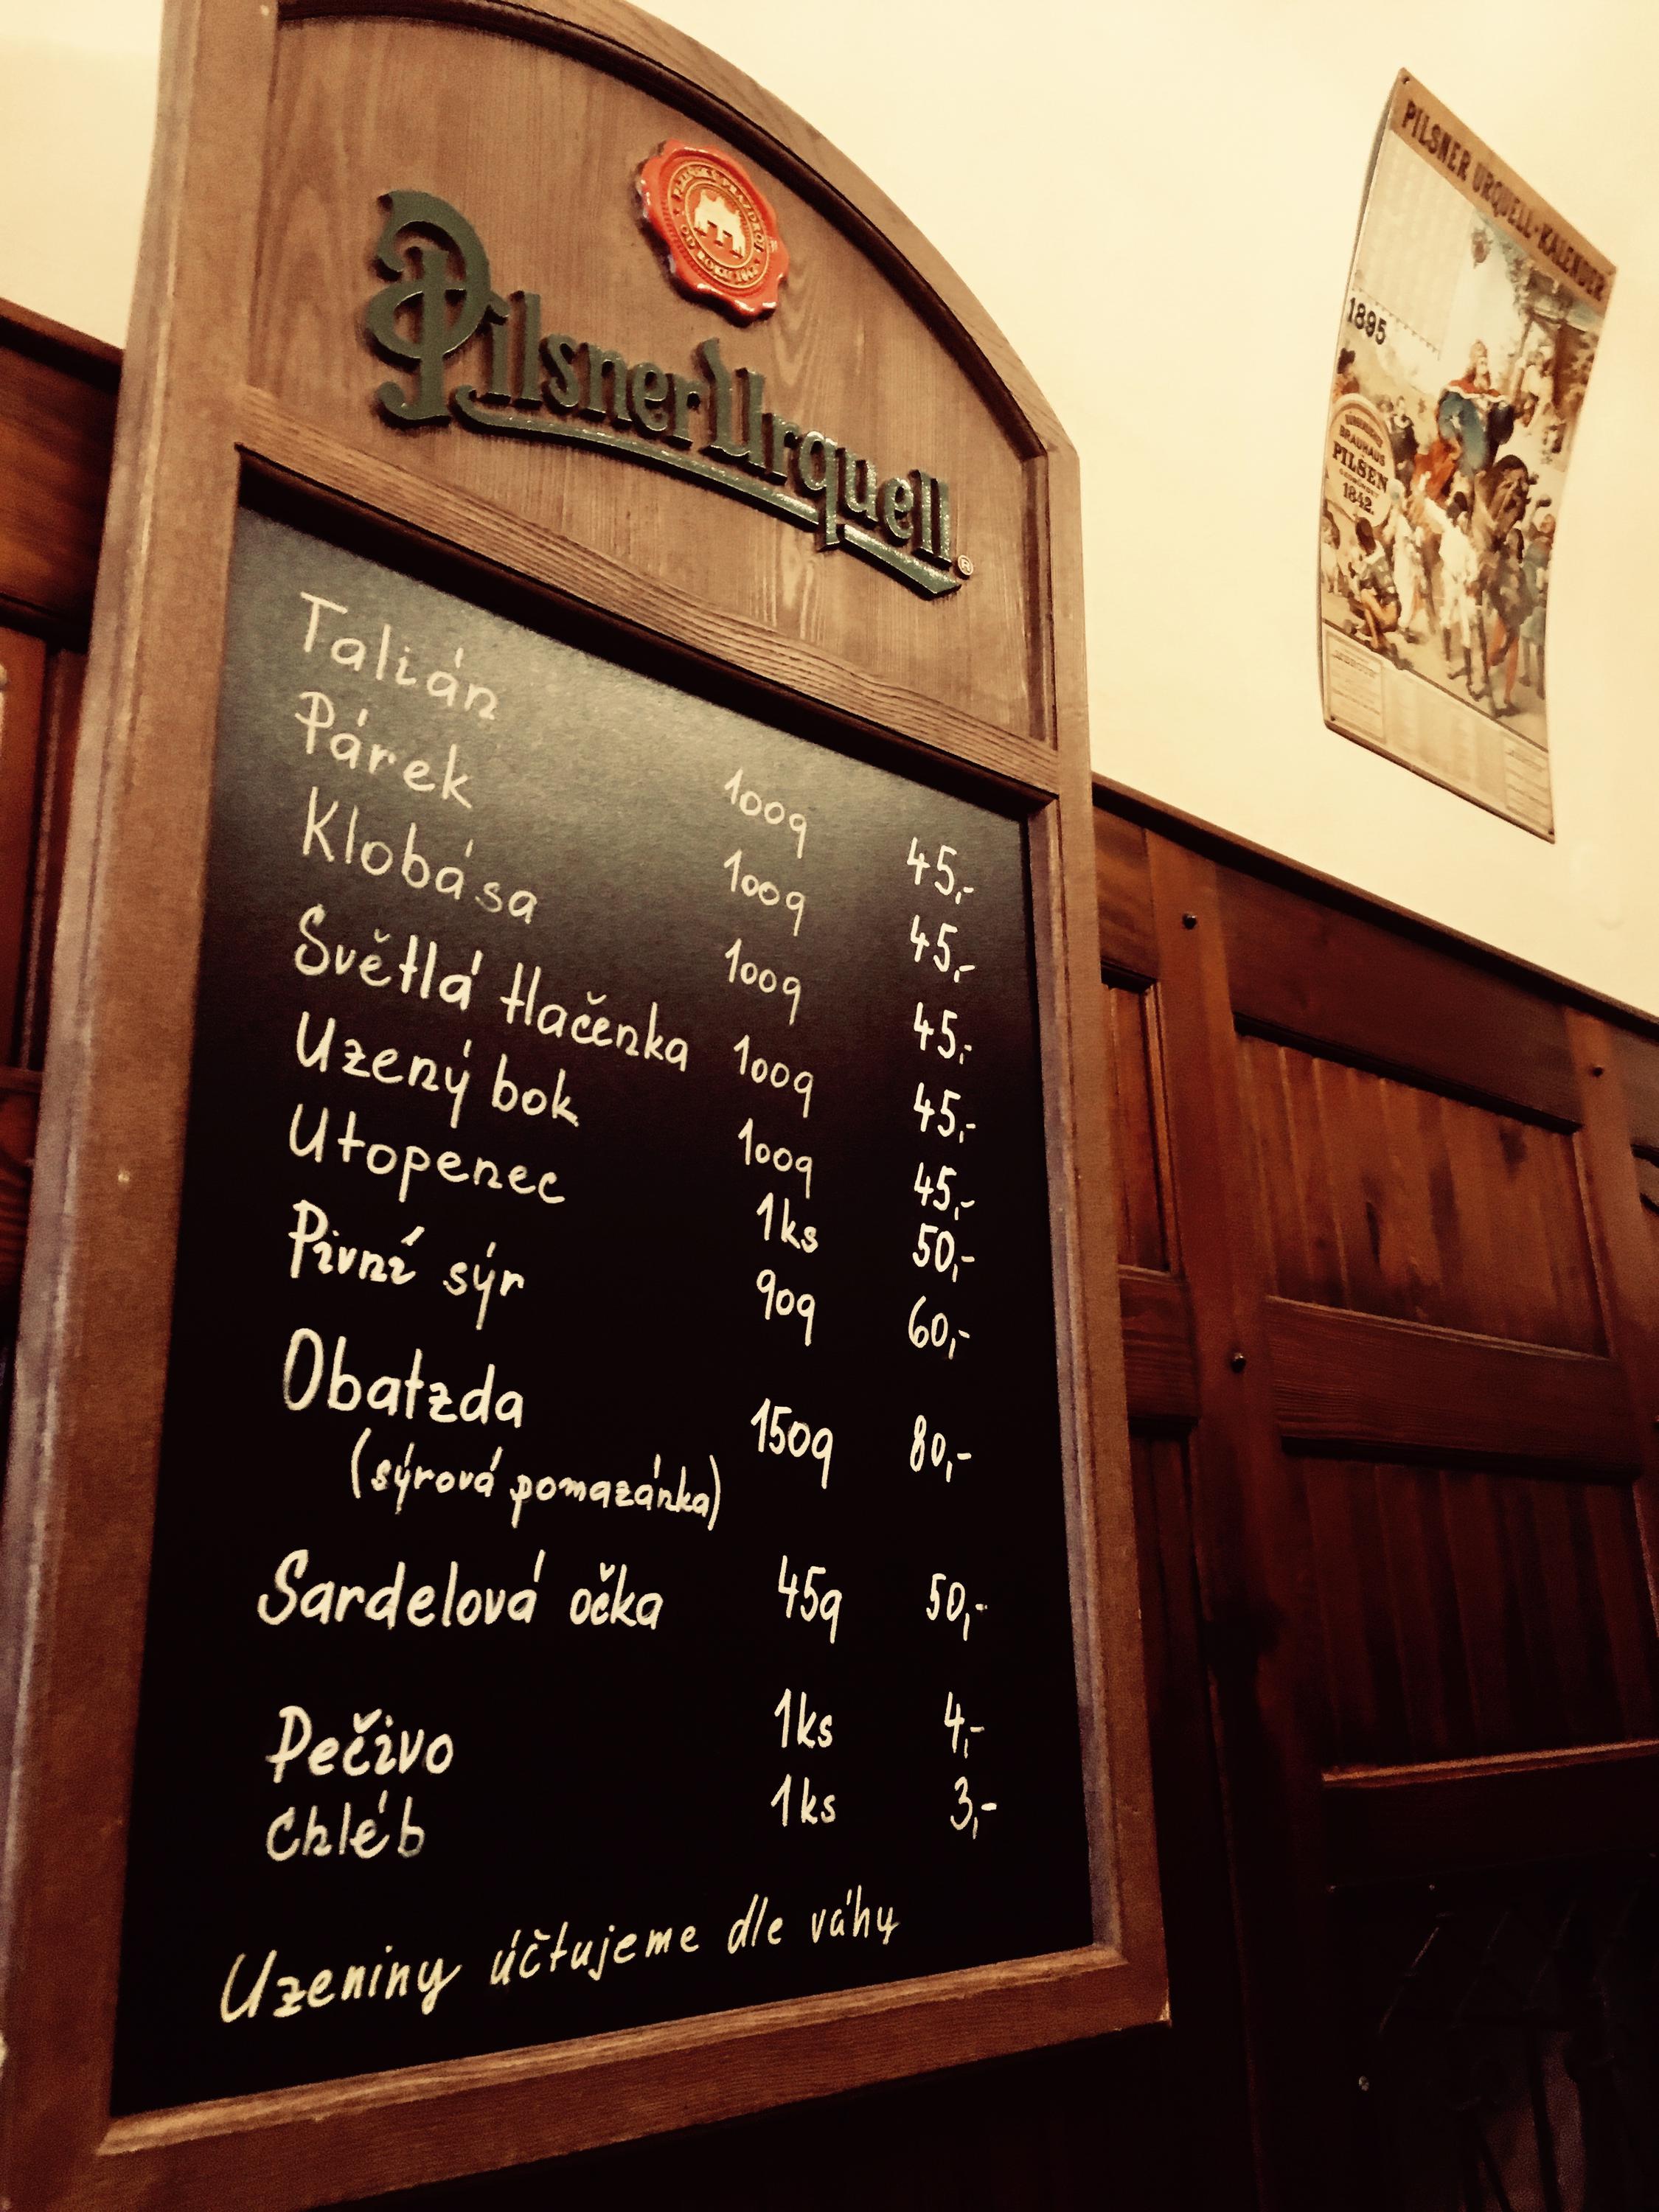 PLZEŇSKÝ PRAZDROJ
OD ROKU 1842
Pilsner Urquell®
Talián 100g 45,-
Párek 100g 45,-
Klobása 100g 45,-
Světlá tlačenka 100g 45,-
Uzený bok 100g 45,-
Utopenec 1ks 50,-
Pivní sýr 90g 60,-
Obatzda 150g 80,-
(sýrová pomazánka)
Sardelová očka 45g 50,-
Pečivo 1ks 4,-
Chléb 1ks 3,-
Uzeniny účtujeme dle váhy
PILSNER URQUELL-KALENDER
1895
BRAUHAUS
PILSEN
1842.